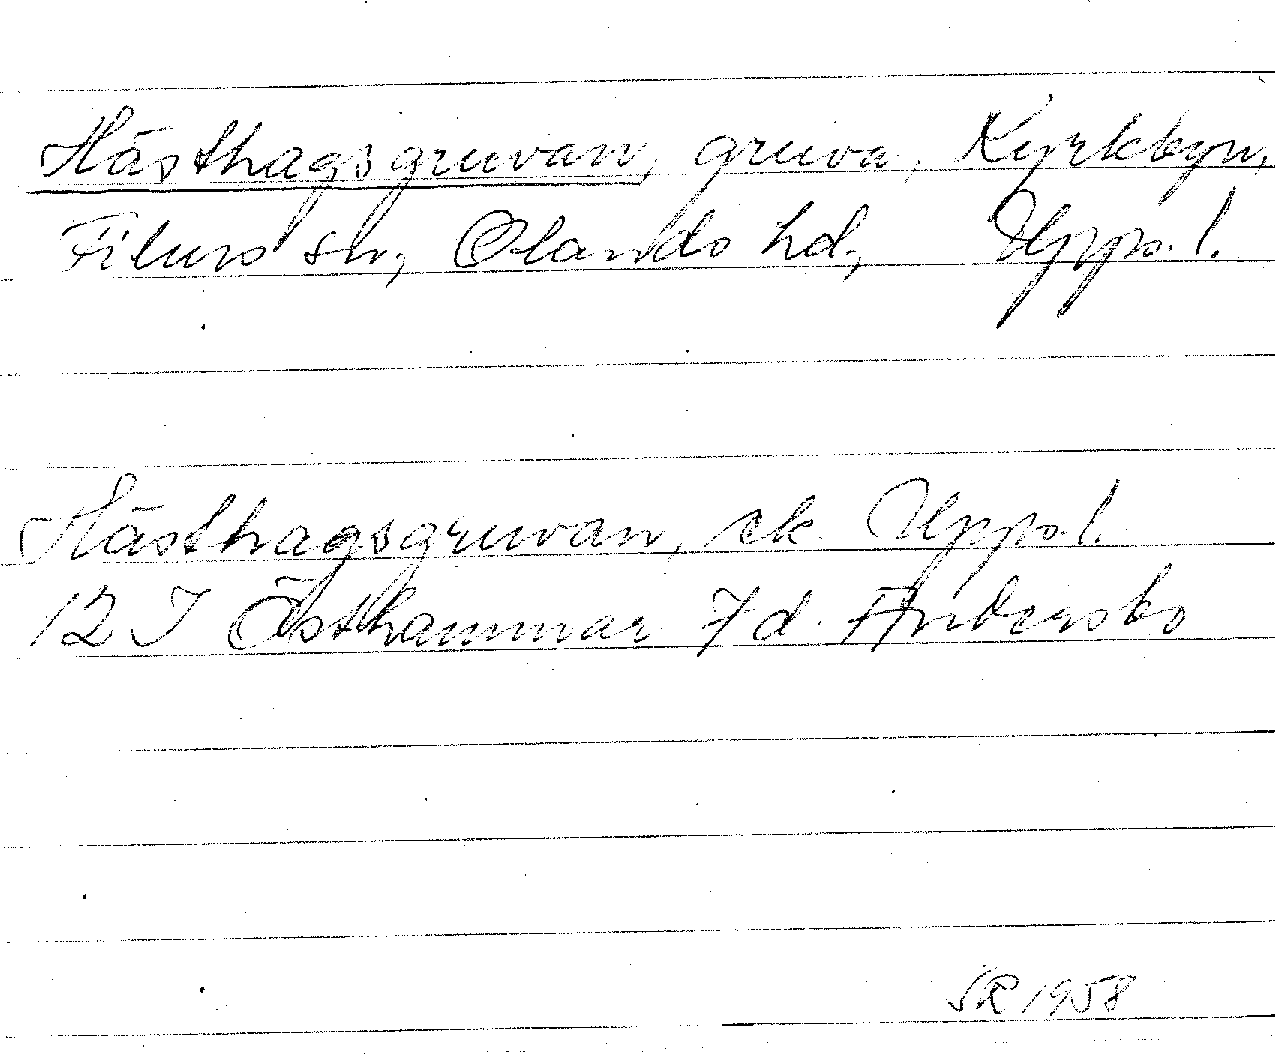 Hästhagsgruvan, gruva, Kyrkbyn,
Films sn, Olands hd, Uppl.
Hästhagsgruvan, ek. Uppl.
12 I Östhammar 7 d. Andersbo
SR 1958